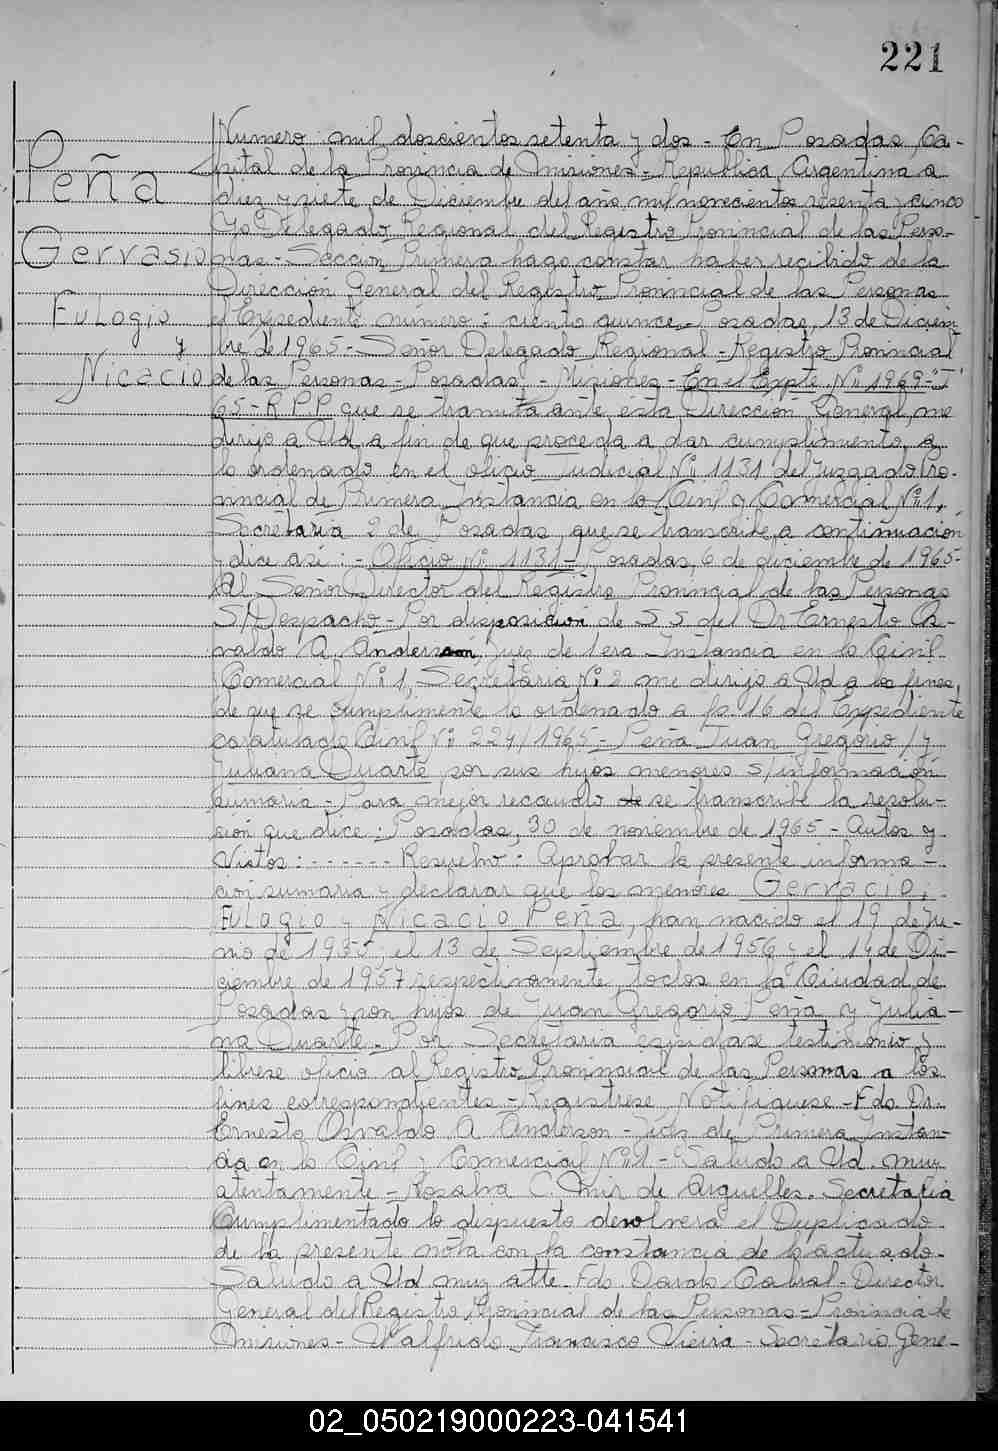 221
Peña
Gervasio
Eulogio
y
Nicacio
Numero: mil doscientos setenta y dos - En Posadas, Ca-
pital de la Provincia de Misiones - Republica Argentina a
diez y siete de Diciembre del año mil novecientos sesenta y cinco
Yo Delegado Regional del Registro Provincial de las Perso-
nas - Seccion Primera hago constar haber recibido de la
Direccion General del Registro Provincial de las Personas
el Expediente numero: ciento quince - Posadas, 13 de Diciem-
bre de 1965 - Señor Delegado Regional - Registro Provincial
de las Personas - Posadas - Misiones - En el Expte Nº 1969-"I"
65 - R.P.P. que se tramita ante esta Dirección General, me
dirijo a Ud. a fin de que proceda a dar cumplimiento a
lo ordenado en el oficio Judicial Nº 1131 del Juzgado Pro-
vincial de Primera Instancia en lo Civil y Comercial Nº 1,
Secretaria 2 de Posadas, que se transcribe a continuación
y dice así: - Oficio Nº 1131 - Posadas, 6 de diciembre de 1965-
Al Señor Director del Registro Provincial de las Personas
S/Despacho - Por disposicion de S.S. del Dr Ernesto Os-
valdo A. Anderson, Juez de 1era Instancia en lo Civil
Comercial Nº 1, Secretaria Nº 2 me dirijo a Ud a los fines
de que se cumplimente lo ordenado a fs 16 del Expediente
caratulado Civil Nº 224/1965 - Peña Juan Gregorio / y
Juliana Duarte por sus hijos menores s/información
sumaria - Para mejor recaudo se transcribe la resolu-
ción que dice: Posadas, 30 de noviembre de 1965 - Autos y
Vistos: - - - - - - Resuelvo: Aprobar la presente informa-
cion sumaria y declarar que los menores Gervacio,
Eulogio y Nicacio Peña, han nacido el 19 de Ju-
nio de 1955; el 13 de Septiembre de 1956 y el 14 de Di-
ciembre de 1957 respectivamente, todos en la Ciudad de
Posadas y son hijos de Juan Gregorio Peña y Julia-
na Duarte. Por Secretaria expidase testimonio y
librese oficio al Registro Provincial de las Personas a los
fines correspondientes - Registrese, Notifiquese - Fdo. Dr.
Ernesto Osvaldo A. Anderson - Juez de Primera Instan-
cia en lo Civil y Comercial Nº 1 - Saludo a Ud. muy
atentamente - Rosalva C. Mir de Arguelles. Secretaria
Cumplimentado lo dispuesto devolvera el Duplicado
de la presente nota con la constancia de lo actuado.
Saludo a Ud muy atte. Fdo. Dardo Cabral - Director
General del Registro Provincial de las Personas - Provincia de
Misiones - Walfrido Francisco Vieira - Secretario Gene-
02_050219000223-041541